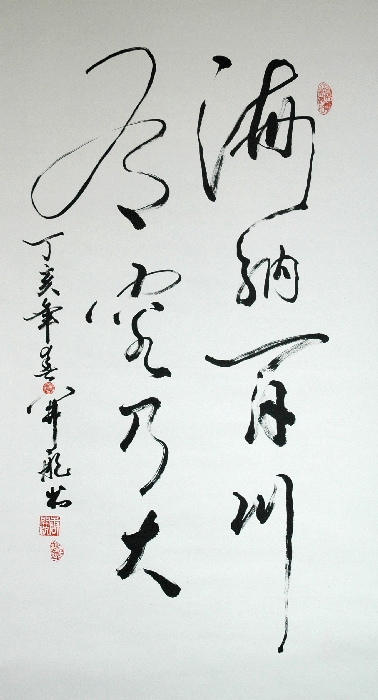 海纳百川
有容乃大
丁亥年春